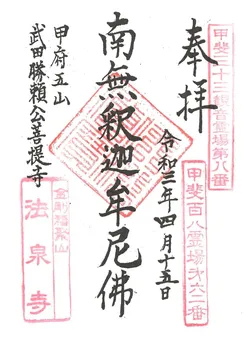 甲斐三十三観音霊場第八番
奉拝
甲斐百八霊場第六二番
令和三年四月十五日
南無釋迦牟尼佛
甲府五山
武田勝頼公菩提寺
金剛福聚山
法泉寺